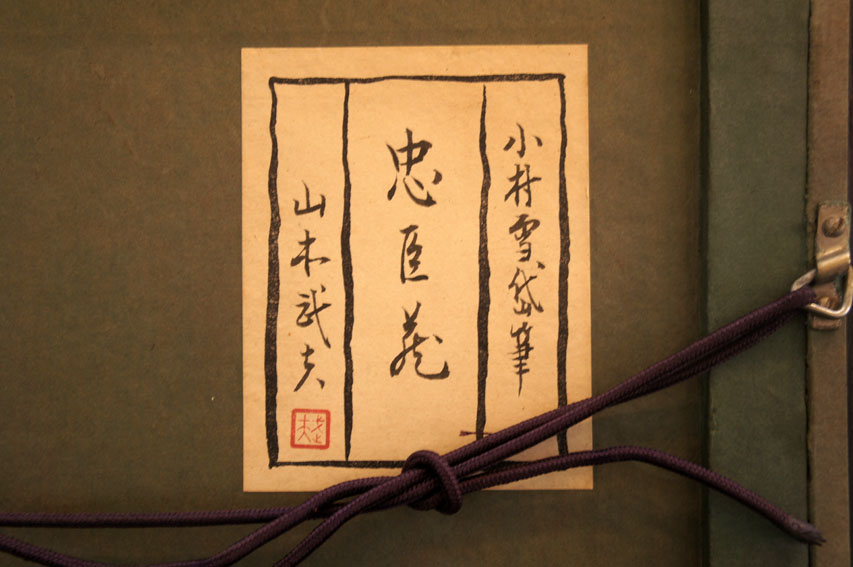 小村雪岱筆
忠臣蔵
山本武夫